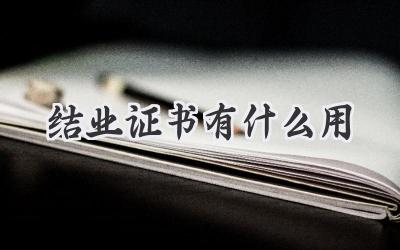 结业证书有什么用